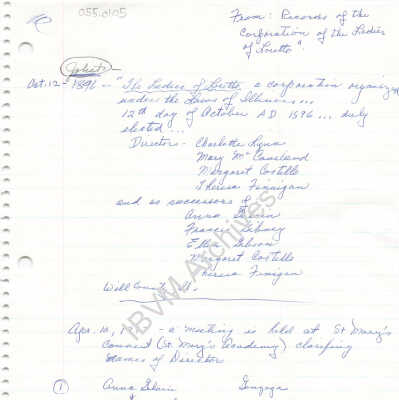 055.0105
From: Records of the
Corporation of the Ladies
of Loretto".
Joliet
Oct. 12 - 1896 - "The Ladies of Loretto, a corporation organized
under the Laws of Illinois...
12th day of October AD 1896... duly
elected...
Directors - Charlotte Lynn
Mary McCausland
Margaret Costello
Theresa Finnigan
and as successors of
Anna
Frances
Ella
Margaret Costello
Theresa Finigan
Will County Ill.
IBVM Archives
Apr. 10, - a meeting is held at St Mary's
Convent (St. Mary's Academy) clarifying
names of Director
1 Anna Gonzaga